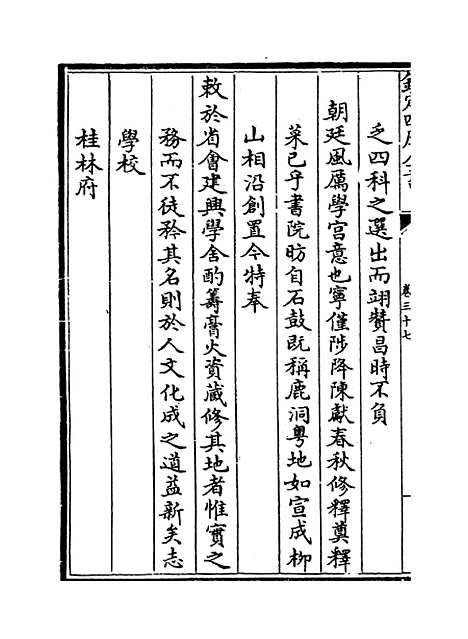 欽定四庫全書
卷三十七
乏四科之選出而翊贊昌時不負
朝廷風厲學宫意也寧僅陟降陳獻春秋修釋奠釋
菜已乎書院昉自石鼓既稱鹿洞粤地如宣成柳
山相沿創置今特奉
敕於省會建興學舍酌籌膏火資蔵修其地者惟實之
務而不徒矜其名則於人文化成之道益新矣志
學校
桂林府